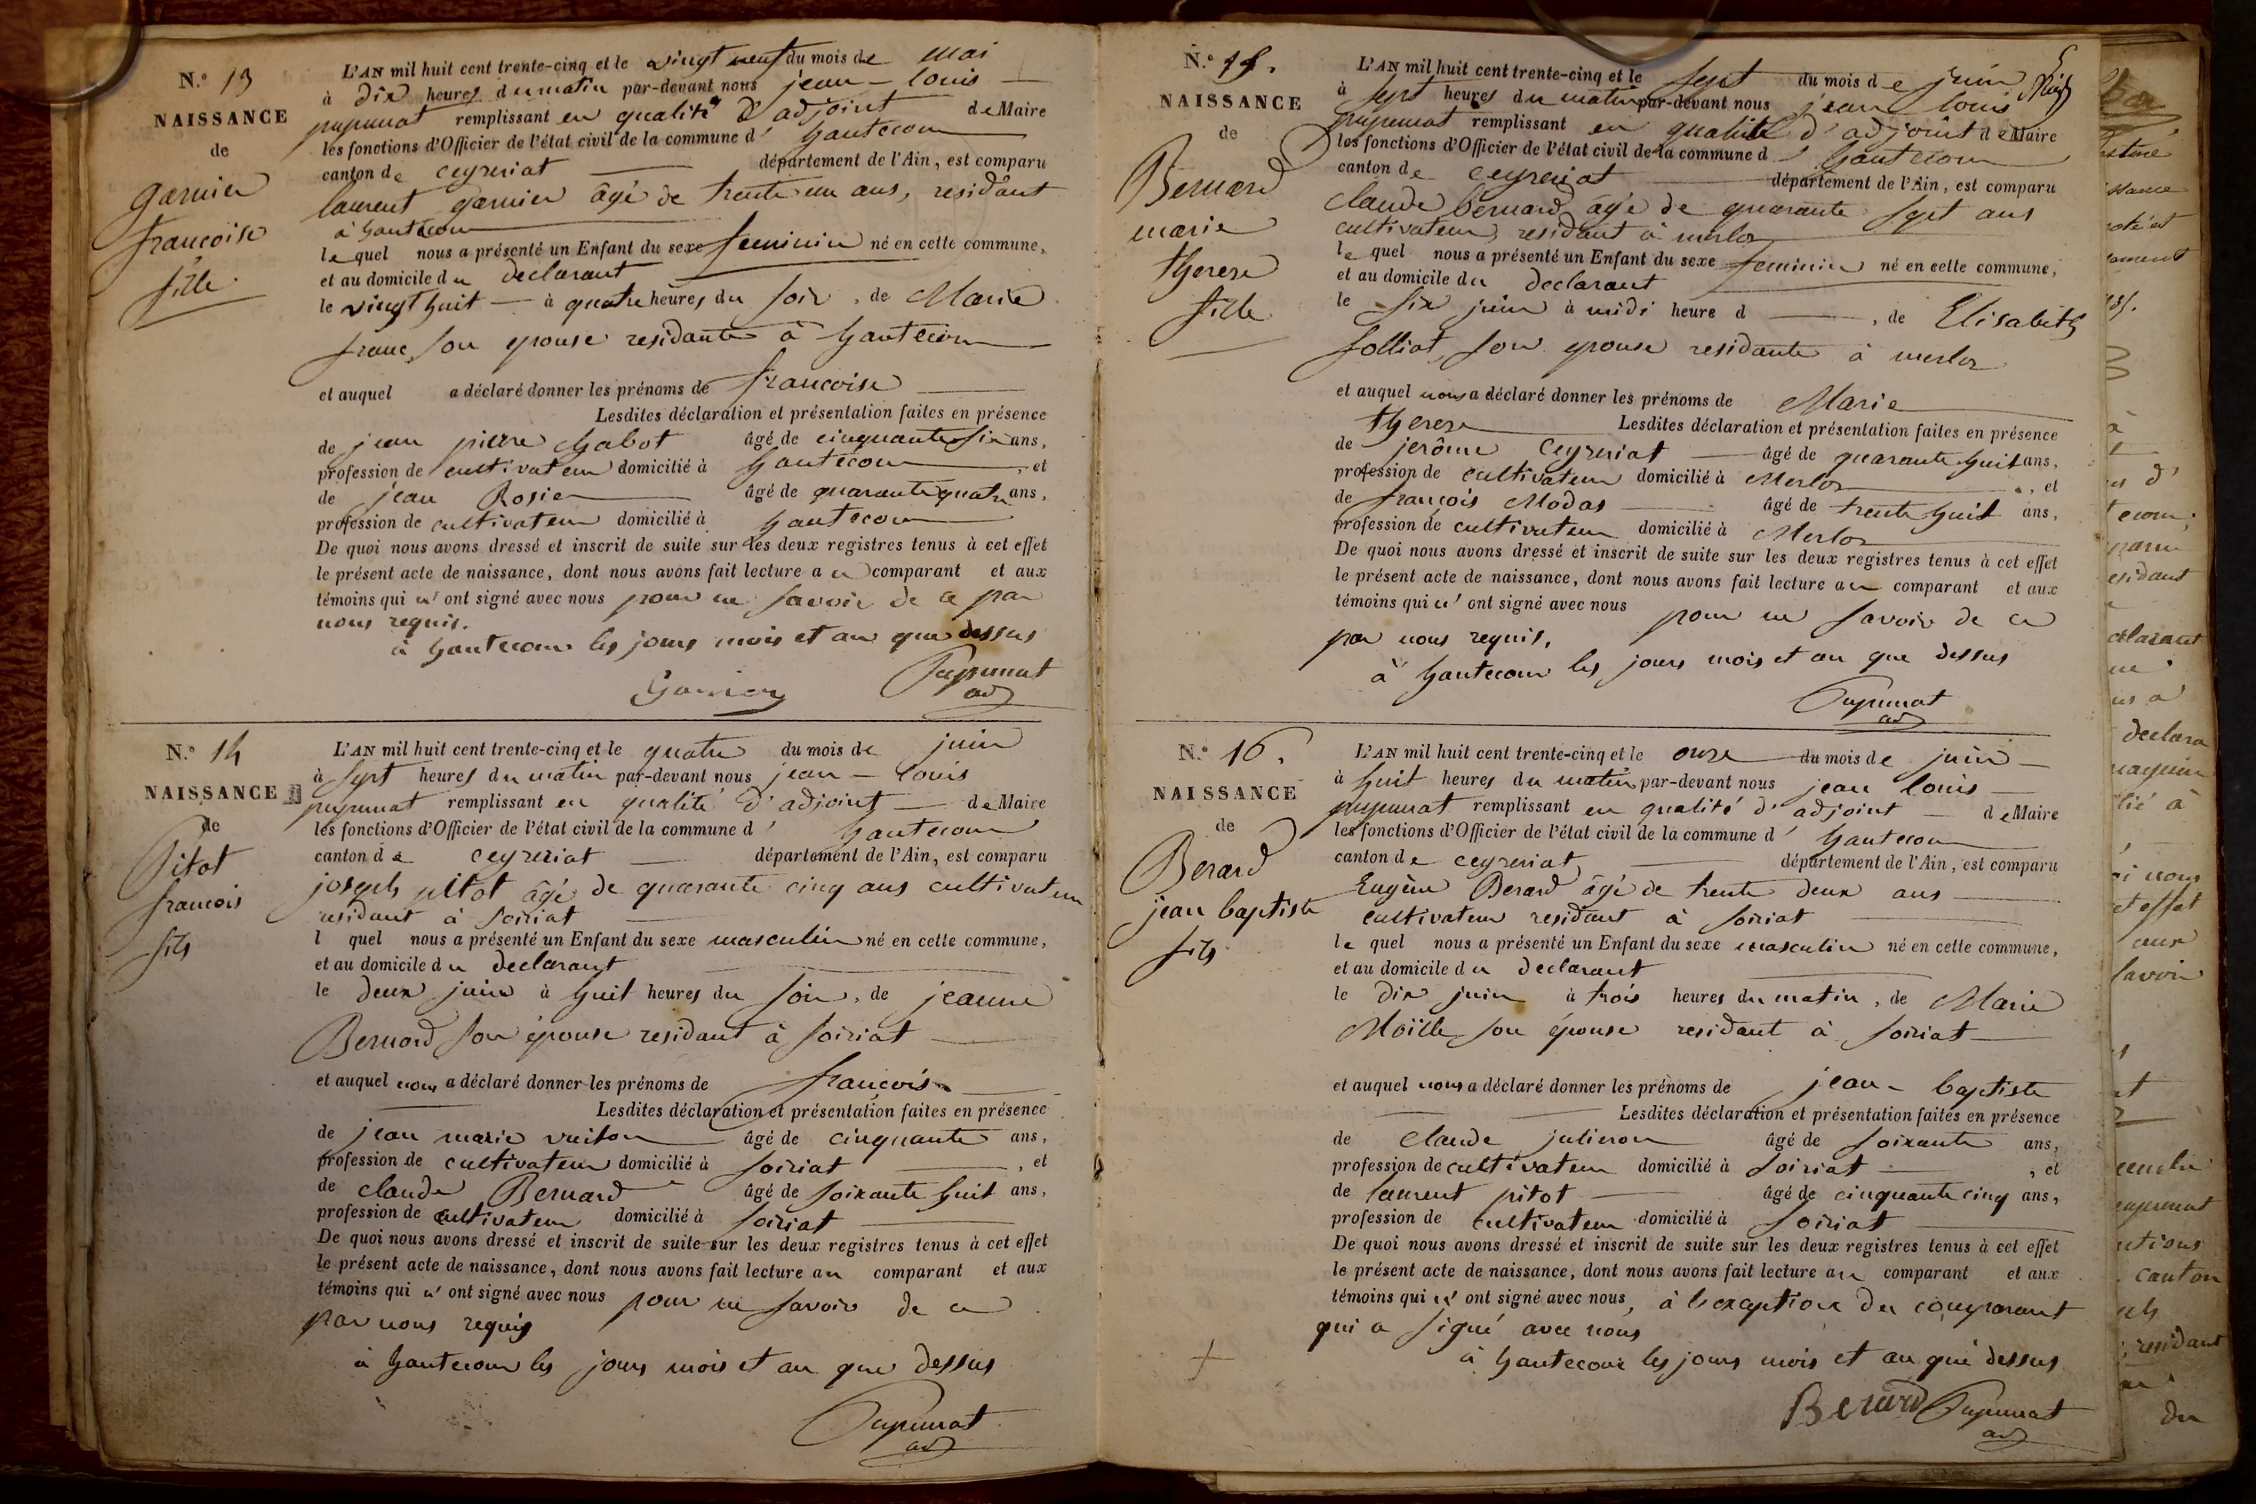 N.º 13
NAISSANCE
de
garnier
françoise
fille.
L'AN mil huit cent trente-cinq et le vingt neuf du mois de mai
à dix heures du matin par-devant nous jean - louis
pupunat remplissant en qualité d'adjoint de Maire
les fonctions d'Officier de l'état civil de la commune d' hautecour
canton de ceyzeriat département de l'Ain, est comparu
laurent garnier âgé de trente un ans, residant
à hautecour
le quel nous a présenté un Enfant du sexe feminin né en cette commune,
et au domicile du declarant
le vingt huit à quatre heures du soir, de Marie
franc son epouse residante à hautecour
et auquel a déclaré donner les prénoms de françoise
Lesdites déclaration et présentation faites en présence
de jean pierre chabot âgé de cinquante six ans,
profession de cultivateur domicilié à hautecour, et
de jean Rosier âgé de quarante quatre ans,
profession de cultivateur domicilié à hautecour
De quoi nous avons dressé et inscrit de suite sur les deux registres tenus à cet effet
le présent acte de naissance, dont nous avons fait lecture au comparant et aux
témoins qui n' ont signé avec nous pour ne savoir de ce par
nous requis.
à hautecour les jours mois et an que dessus
Garnier Pupunat
adj
N.º 14
NAISSANCE
de
Pitot
francois
fils
L'AN mil huit cent trente-cinq et le quatre du mois de juin
à sept heures du matin par-devant nous jean - louis
pupunat remplissant en qualité d'adjoint de Maire
les fonctions d'Officier de l'état civil de la commune d' hautecour
canton de ceyzeriat département de l'Ain, est comparu
joseph pitot âgé de quarante cinq ans cultivateur
residant à soiriat
l quel nous a présenté un Enfant du sexe masculin né en cette commune,
et au domicile du declarant
le deux juin à huit heures du soir, de jeanne
Bernard son épouse residant à soiriat
et auquel nous a déclaré donner les prénoms de françois
Lesdites déclaration et présentation faites en présence
de jean marie vuiton âgé de cinquante ans,
profession de cultivateur domicilié à soiriat, et
de claude Bernard âgé de soixante huit ans,
profession de cultivateur domicilié à soiriat
De quoi nous avons dressé et inscrit de suite sur les deux registres tenus à cet effet
le présent acte de naissance, dont nous avons fait lecture au comparant et aux
témoins qui n' ont signé avec nous pour ne savoir de ce
par nous requis
à hautecour les jours mois et an que dessus
Pupunat
adj
N.º 15.
NAISSANCE
de
Bernard
marie
therese
fille
L'AN mil huit cent trente-cinq et le sept du mois de juin
à sept heures du matin par-devant nous jean louis
pupunat remplissant en qualité d'adjoint de Maire
les fonctions d'Officier de l'état civil de la commune d' hautecour
canton de ceyzeriat département de l'Ain, est comparu
claude bernard âgé de quarante sept ans
cultivateur residant à merloz
le quel nous a présenté un Enfant du sexe feminin né en cette commune,
et au domicile du declarant
le six juin à midi heure d, de Elisabeth
folliat son epouse residante à merloz
et auquel nous a déclaré donner les prénoms de Marie
therese Lesdites déclaration et présentation faites en présence
de jerôme Ceyzeriat âgé de quarante huit ans,
profession de cultivateur domicilié à Merloz, et
de françois Modas âgé de trente huit ans,
profession de cultivateur domicilié à Merloz
De quoi nous avons dressé et inscrit de suite sur les deux registres tenus à cet effet
le présent acte de naissance, dont nous avons fait lecture au comparant et aux
témoins qui n' ont signé avec nous pour ne savoir de ce
par nous requis,
à hautecour les jours mois et an que dessus
Pupunat
adj
N.º 16.
NAISSANCE
de
Berard
jean baptiste
fils
L'AN mil huit cent trente-cinq et le onze du mois de juin
à huit heures du matin par-devant nous jean louis
pupunat remplissant en qualité d'adjoint de Maire
les fonctions d'Officier de l'état civil de la commune d' hautecour
canton de ceyzeriat département de l'Ain, est comparu
Eugène Berard âgé de trente deux ans
cultivateur residant à soiriat
le quel nous a présenté un Enfant du sexe masculin né en cette commune,
et au domicile du declarant
le dix juin à trois heures du matin, de Marie
Moïlle son épouse residant à soiriat
et auquel nous a déclaré donner les prénoms de jean - baptiste
Lesdites déclaration et présentation faites en présence
de claude julieron âgé de soixante ans,
profession de cultivateur domicilié à soiriat, et
de laurent pitot âgé de cinquante cinq ans,
profession de cultivateur domicilié à soiriat
De quoi nous avons dressé et inscrit de suite sur les deux registres tenus à cet effet
le présent acte de naissance, dont nous avons fait lecture au comparant et aux
témoins qui n' ont signé avec nous, à l'exception du comparant
qui a signé avec nous
à hautecour les jours mois et an que dessus
Berard Pupunat
adj